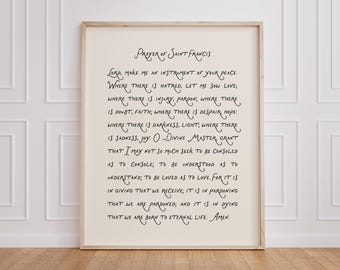 Prayer of Saint Francis
Lord, make me an instrument of your peace.
Where there is hatred, let me sow love;
where there is injury, pardon; where there
is doubt, faith; where there is despair hope;
where there is darkness, light; where there
is sadness, joy. O Divine Master grant
that I may not so much seek to be consoled
as to console; to be understood as to
understand; to be loved as to love for it is
in giving that we receive; it is in pardoning
that we are pardoned; and it is in dying
that we are born to eternal life. Amen.